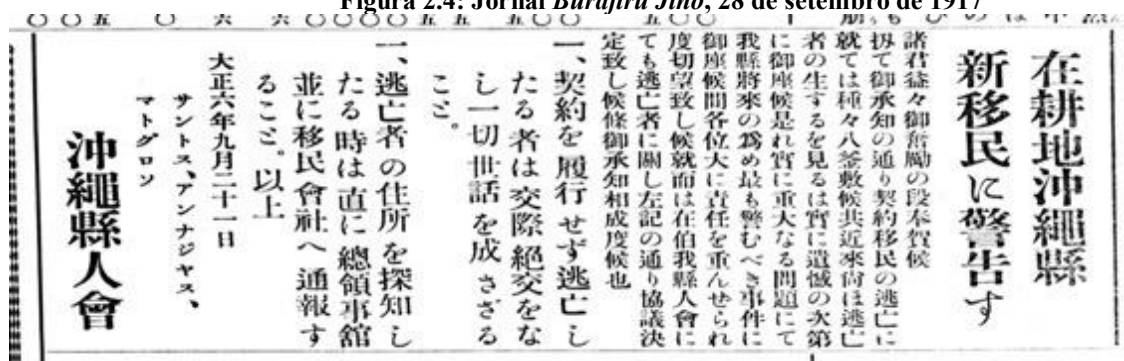 Figura 2.4: Jornal Burajiru Jiho, 28 de setembro de 1917
在耕地沖繩縣
新移民に警告す
諸君益々御奮勵の段奉賀候
扨て御承知の通り契約移民の逃亡に
就ては種々八釜敷候共近來尙ほ逃亡
者の生するを見るは實に遺憾の次第
に御座候是れ實に重大なる問題にて
我縣將來の爲め最も警むべき事件に
御座候間各位大に責任を重んせられ
度切望致し候就而は在伯我縣人會に
ても逃亡者に關し左記の通り協議決
定致し候條御承知相成度候也
一、契約を履行せず逃亡し
たる者は交際絕交をな
し一切世話を成さざる
こと。
一、逃亡者の住所を探知し
たる時は直に總領事舘
並に移民會社へ通報す
ること。以上
大正六年九月二十一日
サントス、アンナジヤス、
マトグロソ
沖繩縣人會